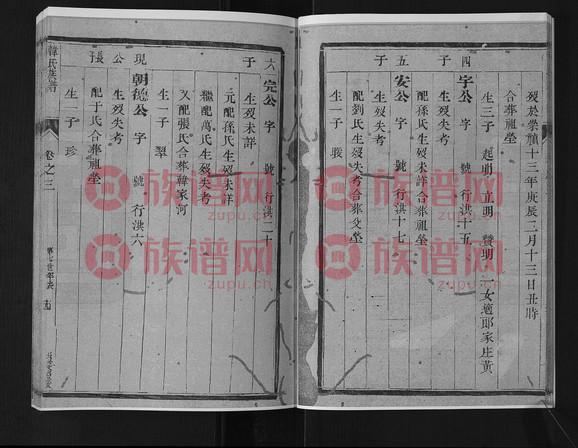 歿於崇禎十三年庚辰二月十三日丑時
合葬祖塋
生三子 起明 立明 贊明 一女適邱家庄黃
四子
宇公 字 號 行洪十五
生歿失考
配孫氏生歿未詳合葬祖塋
五子
安公 字 號 行洪十七
生歿失考
配劉氏生歿失考合葬父塋
生一子
六子
完公 字 號 行洪二十
生歿未詳
元配孫氏生歿未詳
繼配萬氏生歿失考
又配張氏合葬韓家河
生一子 翠
現公長
朝德公 字 號 行洪六
生歿失考
配于氏合葬祖塋
生一子 珍
韓氏族譜
卷之三
第七世年表
族谱网
zupu.cn
族谱网
zupu.cn
族谱网
zupu.cn
族谱网
zupu.cn